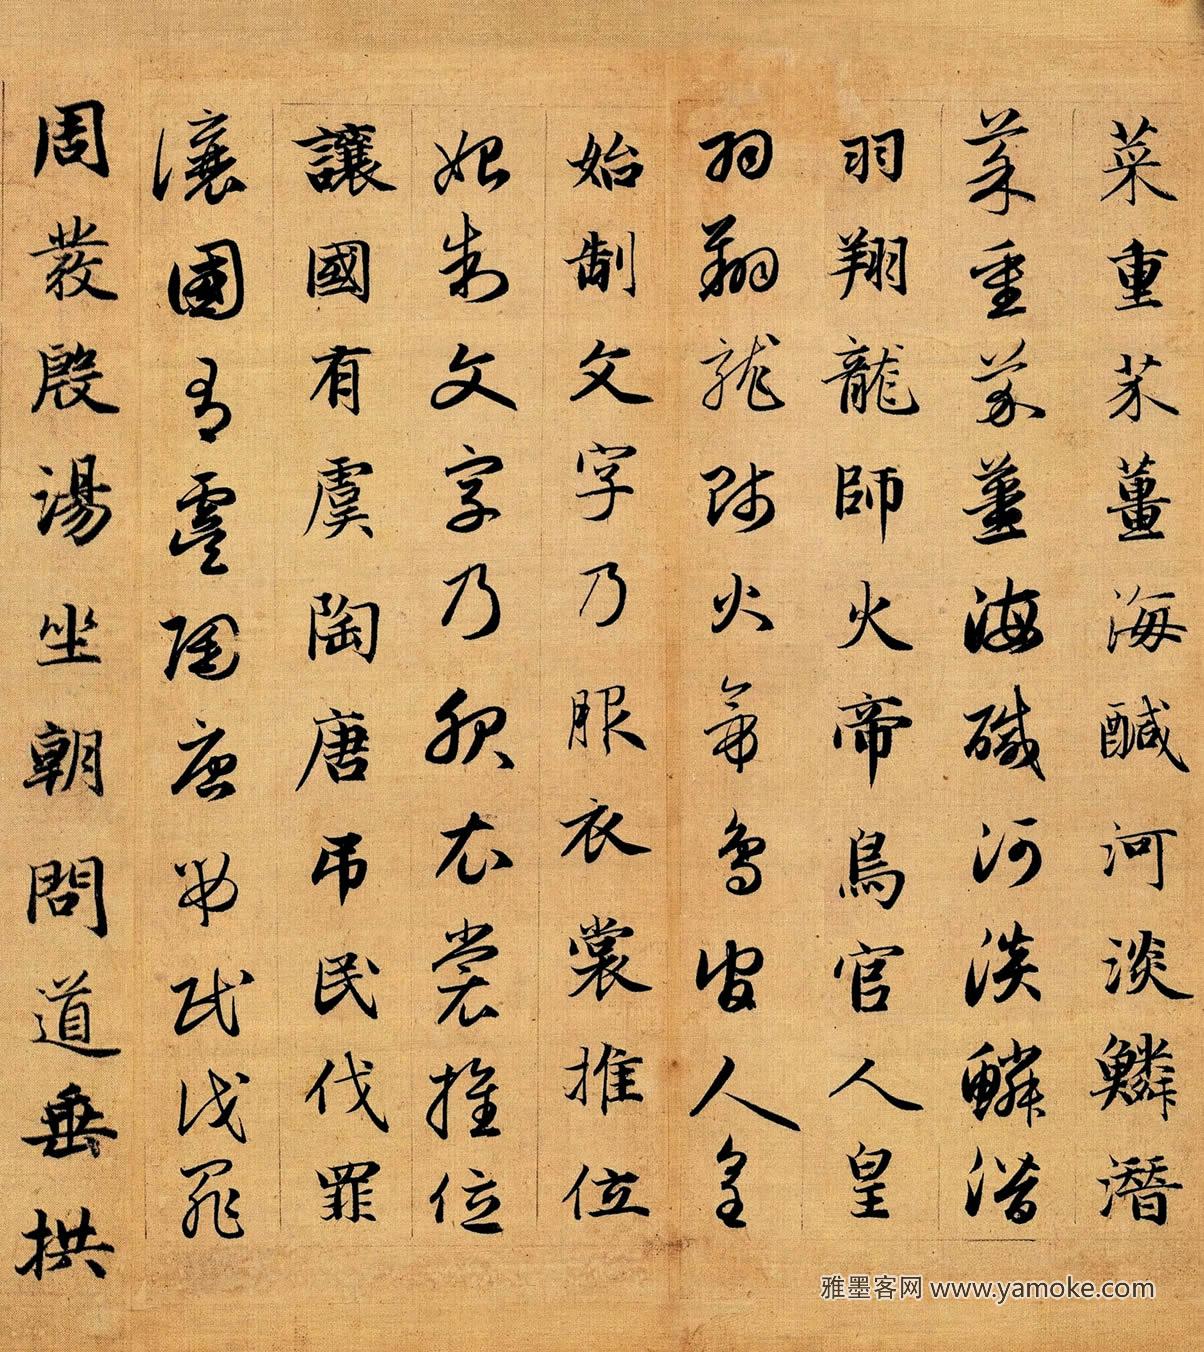 菜重芥薑海醎河淡鱗潛
菜重芥薑海醎河淡鱗潛
羽翔龍師火帝鳥官人皇
羽翔龍師火帝鳥官人皇
始制文字乃服衣裳推位
始制文字乃服衣裳推位
讓國有虞陶唐吊民伐罪
讓國有虞陶唐吊民伐罪
周發殷湯坐朝問道垂拱
雅墨客网 www.yamoke.com